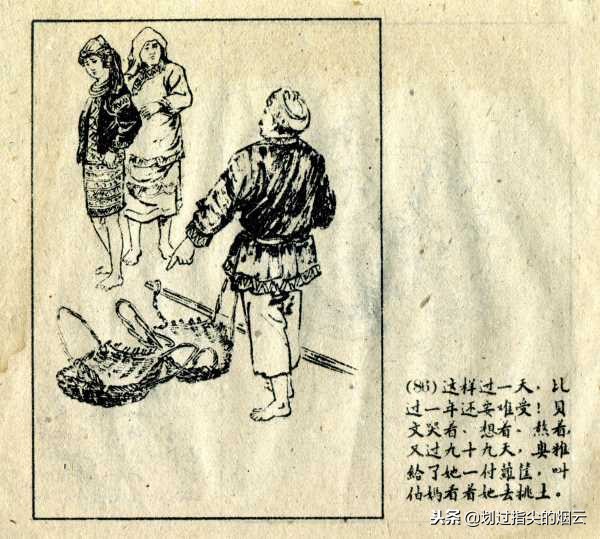 (86)这样过一天，比
过一年还要难受！贝
文哭着、想着、熬着，
又过九十九天，奥雅
給了她一付籮筐，叫
伯媽看着她去挑土。
头条 @划过指尖的烟云